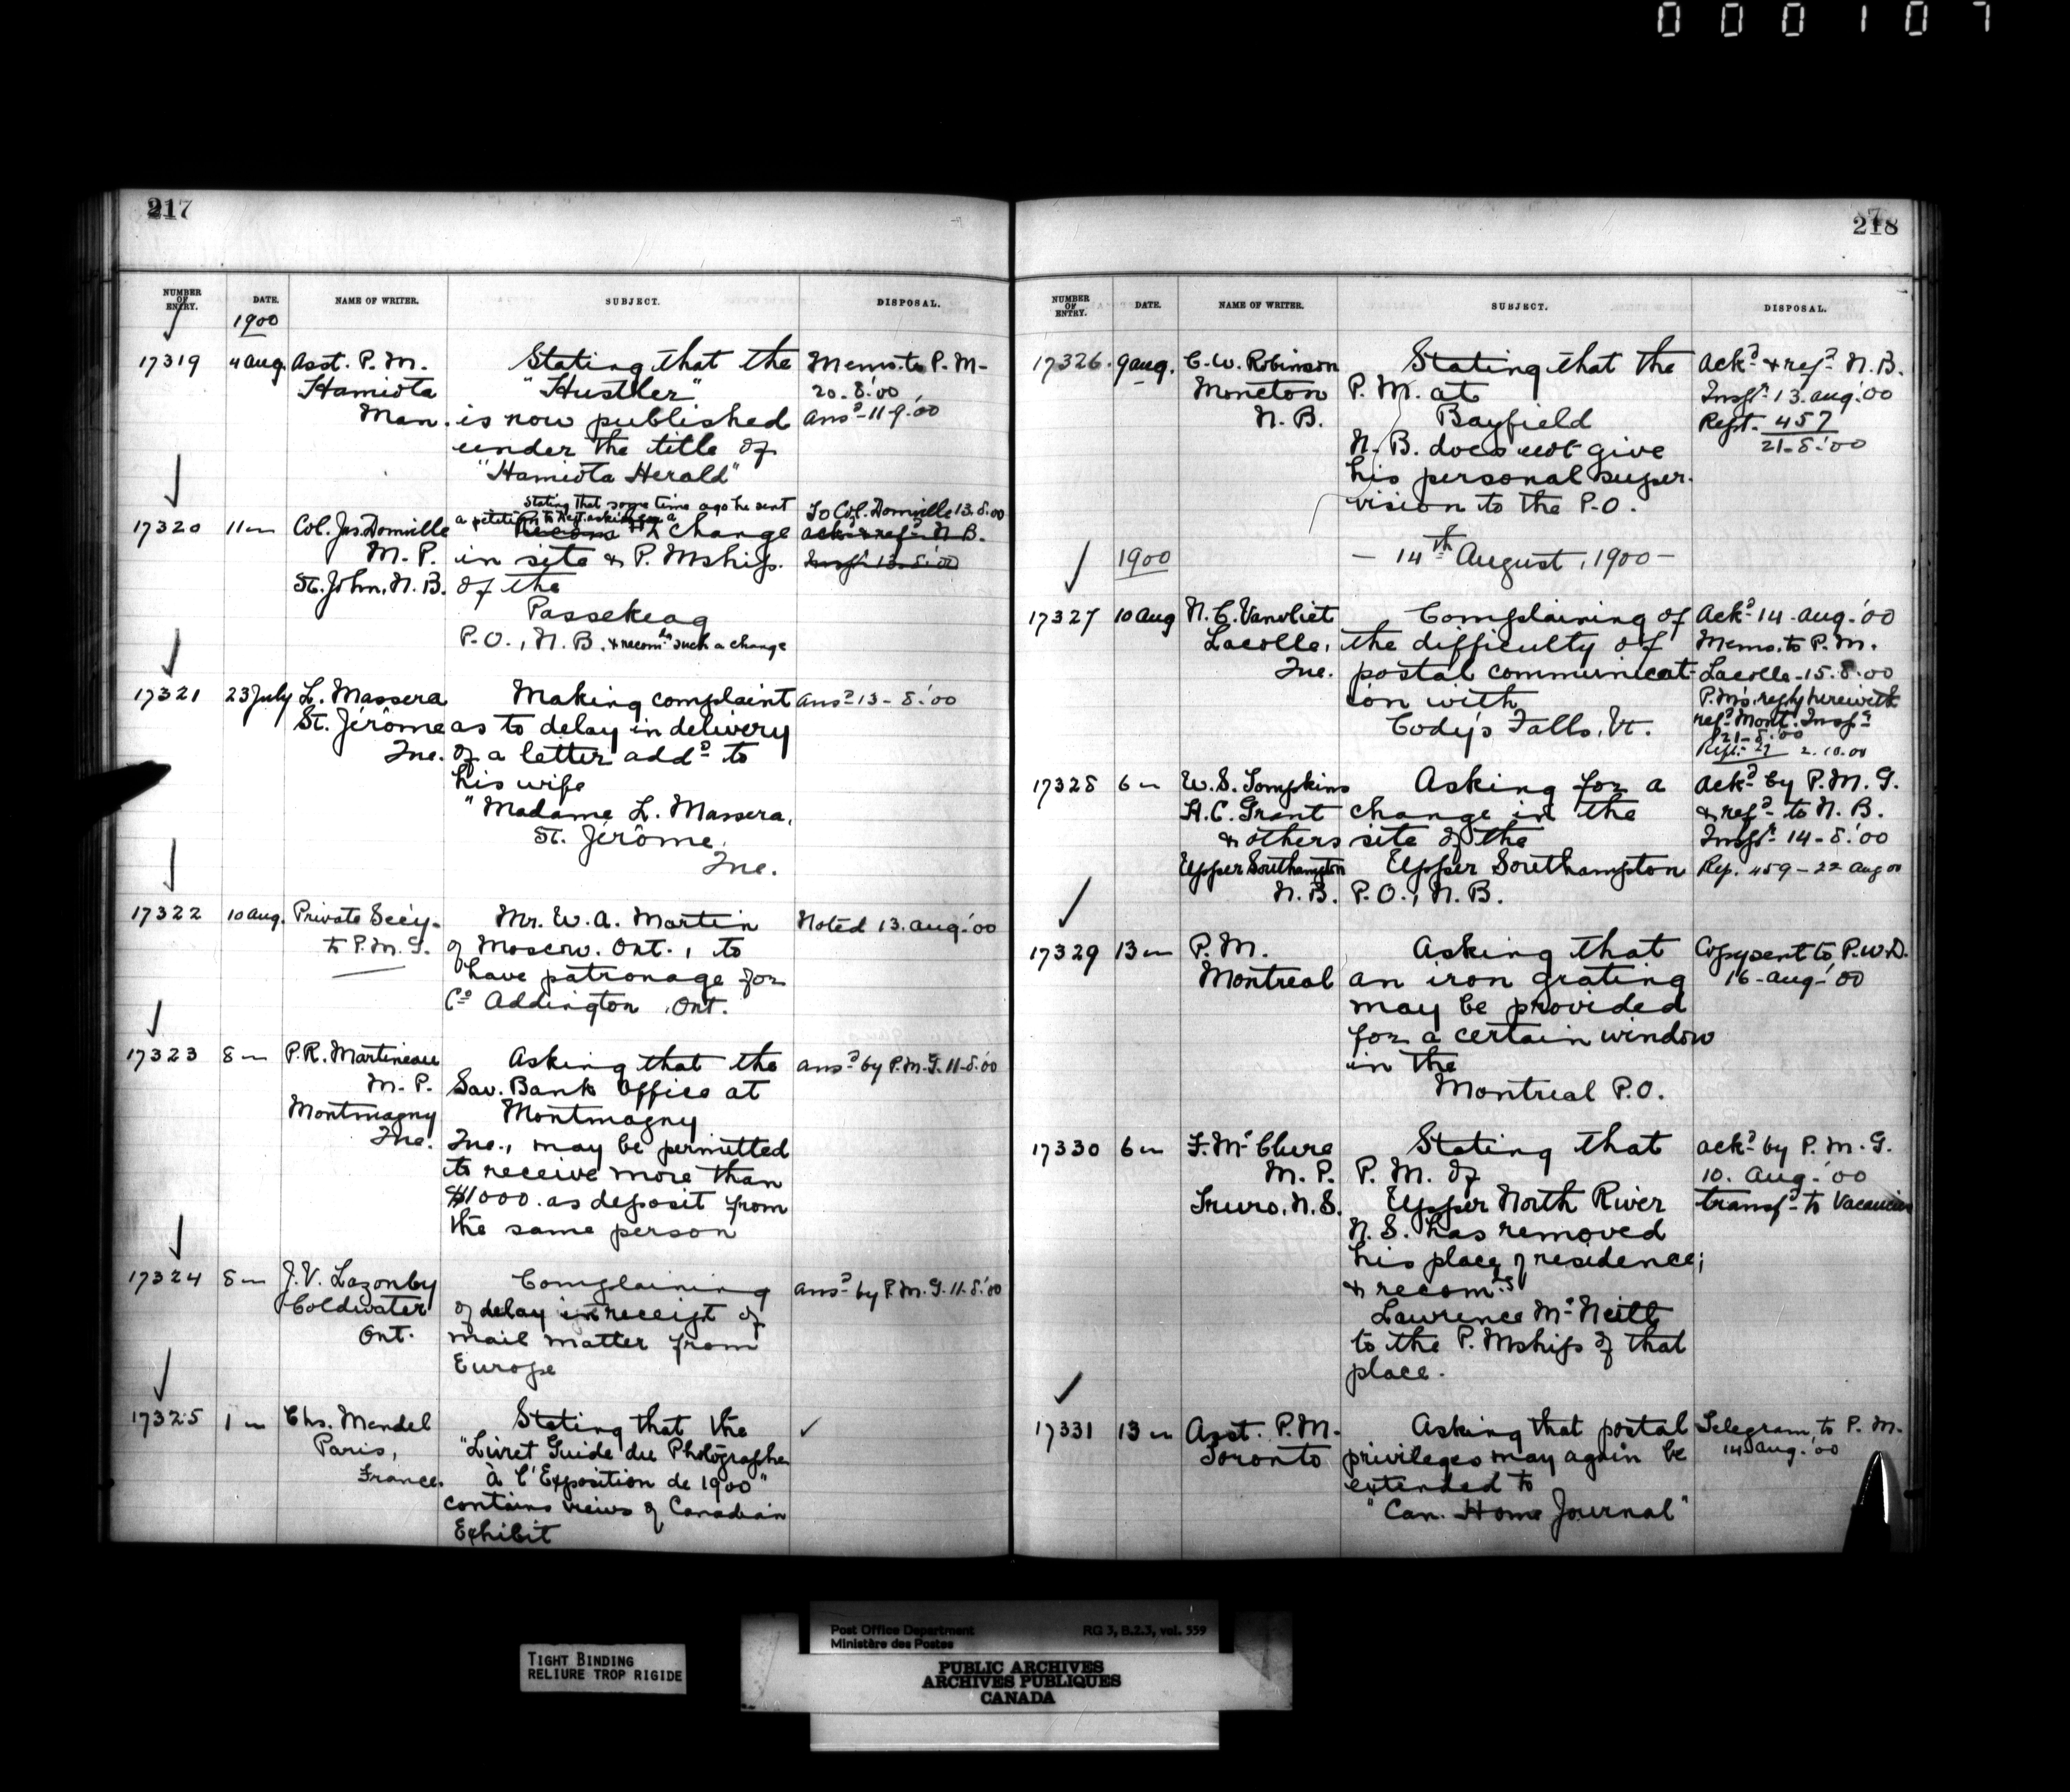 000107
217
NUMBER OF ENTRY. DATE. NAME OF WRITER. SUBJECT. DISPOSAL.
1900
17319 4 Aug. Asst. P. M. Stating that the Memo. to P. M.
Hamiota "Hustler" 20-8-'00
Man. is now published Ansd 11-9-'00
under the title of
"Hamiota Herald"
Stating that some time ago he sent
a petition to Dept. asking for a
17320 11 " Col. Jas. Domville change To Col. Domville 13.8.00
M. P. in site & P. Mship. Ackd & refd N. B.
St. John, N. B. of the Inspr 13-8-'00
Passekeag
P. O., N. B. & recomds such a change
17321 23 July L. Massera Making complaint Ansd 13-8-'00
St. Jérôme as to delay in delivery
Que. of a letter addd to
his wife
"Madame L. Massera,
St. Jérôme,
Que.
17322 10 Aug. Private Secy. Mr. W. A. Martin Noted 13 Aug. '00
to P. M. G. of Moscow, Ont., to
have patronage for
Co Addington, Ont.
17323 8 " P. R. Martineau Asking that the Ansd by P. M. G. 11-8-'00
M. P. Sav. Bank Office at
Montmagny Montmagny
Que. Que., may be permitted
to receive more than
$1000. as deposit from
the same person
17324 8 " J. V. Lazonby Complaining Ansd by P. M. G. 11-8-'00
Coldwater of delay in receipt of
Ont. mail matter from
Europe
17325 1 " Chs. Mendel Stating that the ✓
Paris, "Livret Guide du Photographe
France. à l'Exposition de 1900"
contains views of Canadian
Exhibit
218
NUMBER OF ENTRY. DATE. NAME OF WRITER. SUBJECT. DISPOSAL.
17326 9 Aug. C. W. Robinson Stating that the Ackd & refd N. B.
Moncton P. M. at Inspr 13. Aug. '00
N. B. Bayfield Rept. 457
N. B. does not give 21-8-'00
his personal super-
vision to the P. O.
1900 — 14th August, 1900 —
17327 10 Aug N. C. Vanvliet Complaining of Ackd 14-Aug-'00
Lacolle, the difficulty of Memo. to P. M.
Que. postal communicat- Lacolle-15.8.00
ion with P. M's. reply herewith
Cody's Falls, Vt. refd Mont. Inspr
21-8-'00
Rept. 27 2.10.00
17328 6 " W. S. Tompkins Asking for a Ackd by P. M. G.
H. C. Grant change in the & refd to N. B.
& others site of the Inspr 14-8-'00
Upper Southampton Upper Southampton Rep. 459-22 Aug 00
N. B. P. O., N. B.
17329 13 " P. M. Asking that Copy sent to P. W. D.
Montreal an iron grating 16-Aug-'00
may be provided
for a certain window
in the
Montreal P. O.
17330 6 " F. McClure Stating that Ackd by P. M. G.
M. P. P. M. of 10. Aug. '00
Truro, N. S. Upper North River transfd to Vacancies
N. S. has removed
his place of residence;
& recomds
Lawrence McNeill
to the P. Mship of that
place.
17331 13 " Asst. P. M. Asking that postal Telegram to P. M.
Toronto privileges may again be 14 Aug. '00
extended to
"Can. Home Journal"
Post Office Department RG 3, B.2.3, vol. 559
Ministère des Postes
TIGHT BINDING
RELIURE TROP RIGIDE
PUBLIC ARCHIVES
ARCHIVES PUBLIQUES
CANADA